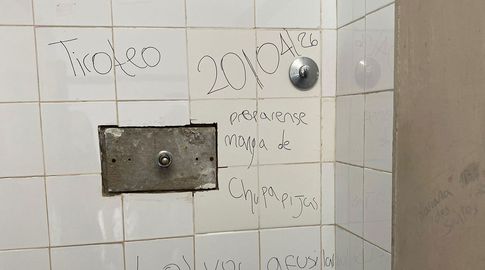 Tiroteo 20/04/26
preparense
manga de
Chupapijas
voy afusilar